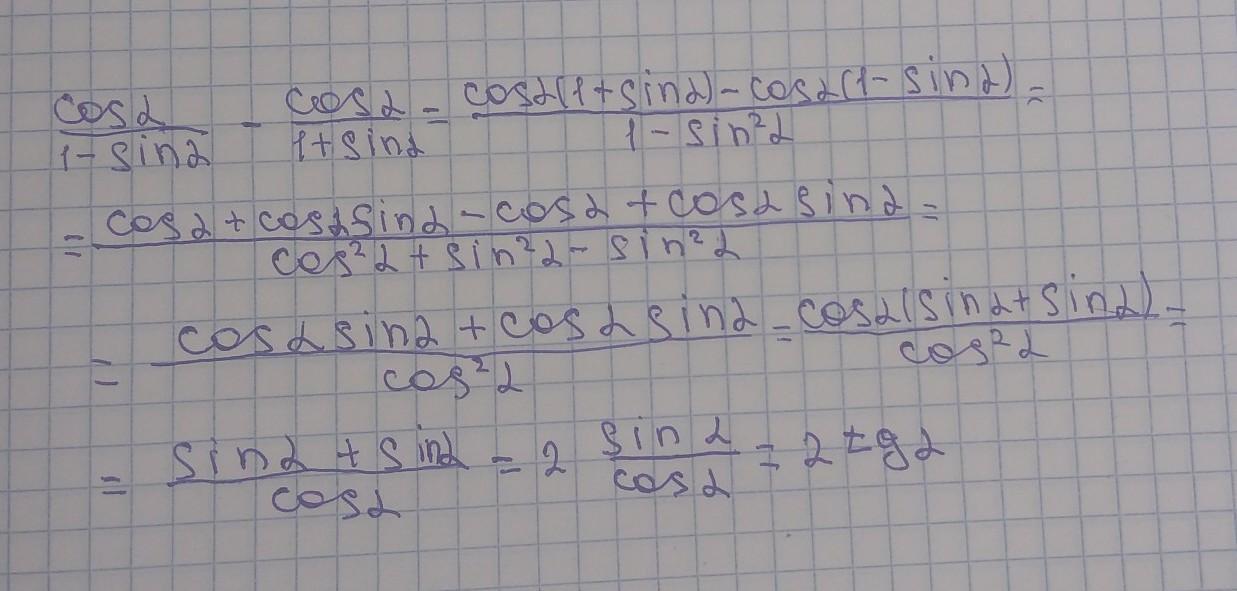 cosα/(1-sinα) - cosα/(1+sinα) = (cosα(1+sinα)-cosα(1-sinα))/(1-sin²α) =
= (cosα+cosαsinα-cosα+cosαsinα)/(cos²α+sin²α-sin²α) =
= (cosαsinα+cosαsinα)/cos²α = cosα(sinα+sinα)/cos²α =
= (sinα+sinα)/cosα = 2 sinα/cosα = 2tgα